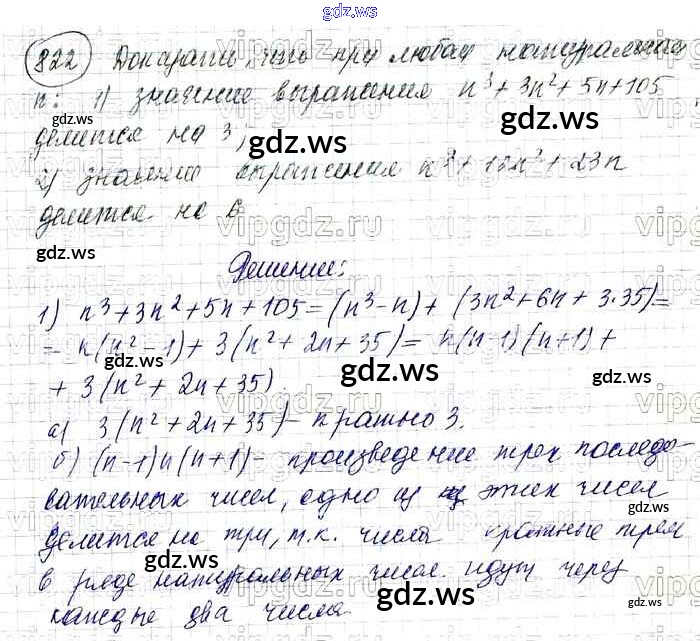 gdz.ws
822 Доказать, что при любом натуральном
n: 1) значение выражения n³ + 3n² + 5n + 105
делится на 3;
2) значение выражения n³ + 12n² + 23n
делится на 6
Решение:
1) n³ + 3n² + 5n + 105 = (n³ - n) + (3n² + 6n + 3·35) =
= n(n² - 1) + 3(n² + 2n + 35) = n(n-1)(n+1) +
+ 3(n² + 2n + 35).
а) 3(n² + 2n + 35) – кратно 3.
б) (n-1)n(n+1) – произведение трех последо-
вательных чисел, одно из этих чисел
делится на три, т.к. числа кратные трем
в ряде натуральных чисел идут через
каждые два числа.
vipgdz.ru
gdz.ws